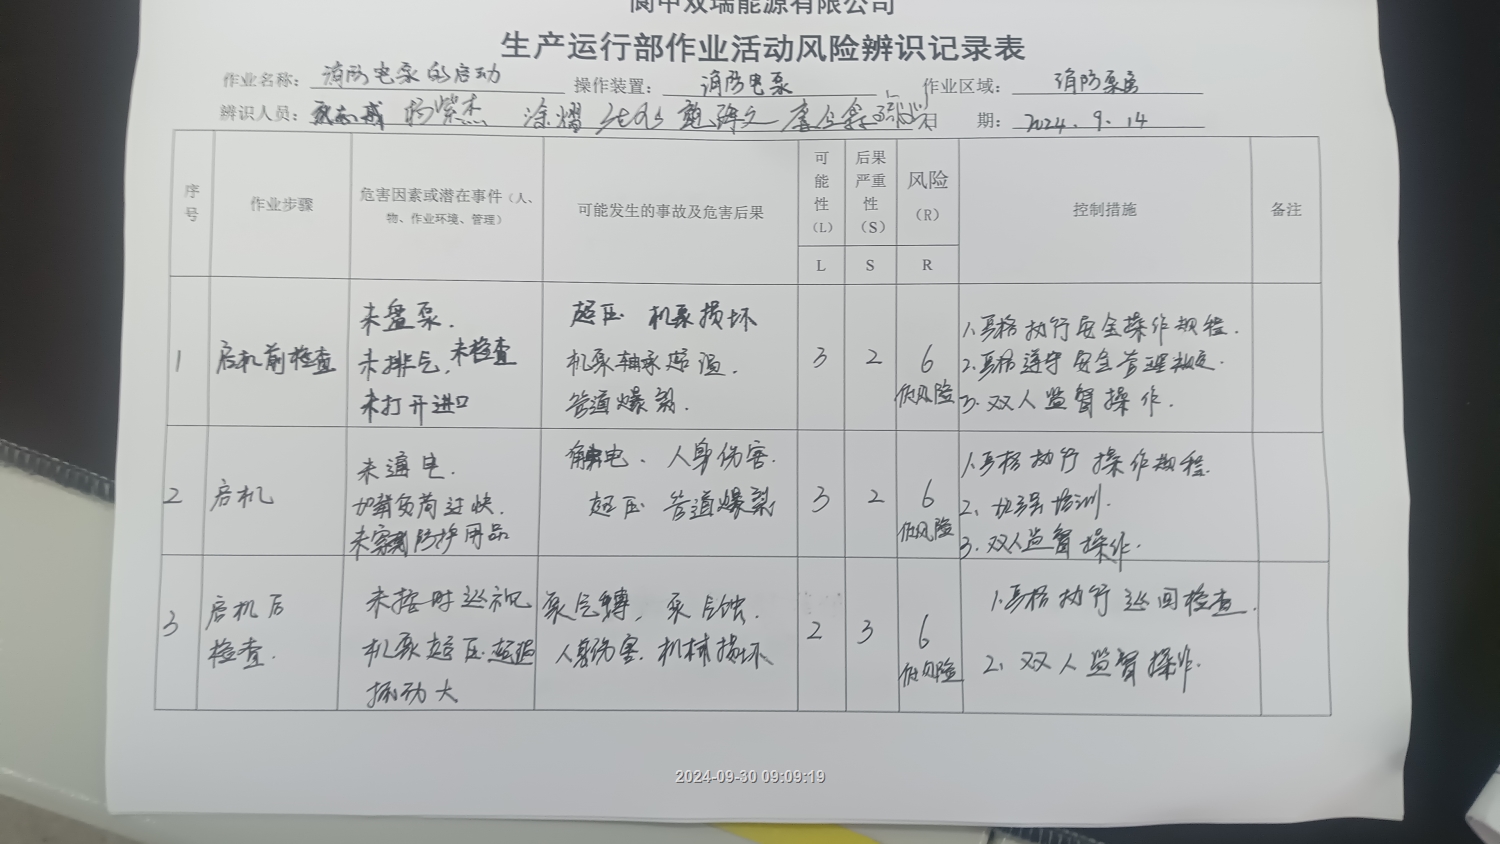 阆中双瑞能源有限公司
生产运行部作业活动风险辨识记录表
作业名称： 消防电泵的启动 操作装置： 消防电泵 作业区域： 消防泵房
辨识人员： 杨紫杰 涂熠 日 期： 2024.9.14
序号 作业步骤 危害因素或潜在事件（人、物、作业环境、管理） 可能发生的事故及危害后果 可能性（L） 后果严重性（S） 风险（R） 控制措施 备注
L S R
1 启机前检查 未盘泵. 未排气, 未检查 未打开进口 超压 机泵损坏 机泵轴承超温. 管道爆裂. 3 2 6 低风险 1.严格执行安全操作规程. 2.严格遵守安全管理规定. 3.双人监督操作.
2 启机 未通电. 加载负荷过快. 未穿戴防护用品 触电、人身伤害. 超压 管道爆裂 3 2 6 低风险 1.严格执行操作规程. 2、加强培训. 3.双人监督操作.
3 启机后检查. 未按时巡视 机泵超压.超温 振动大 泵气缚, 泵气蚀. 人身伤害. 机械损坏 2 3 6 低风险 1.严格执行巡回检查. 2、双人监督操作.
2024-09-30 09:09:19